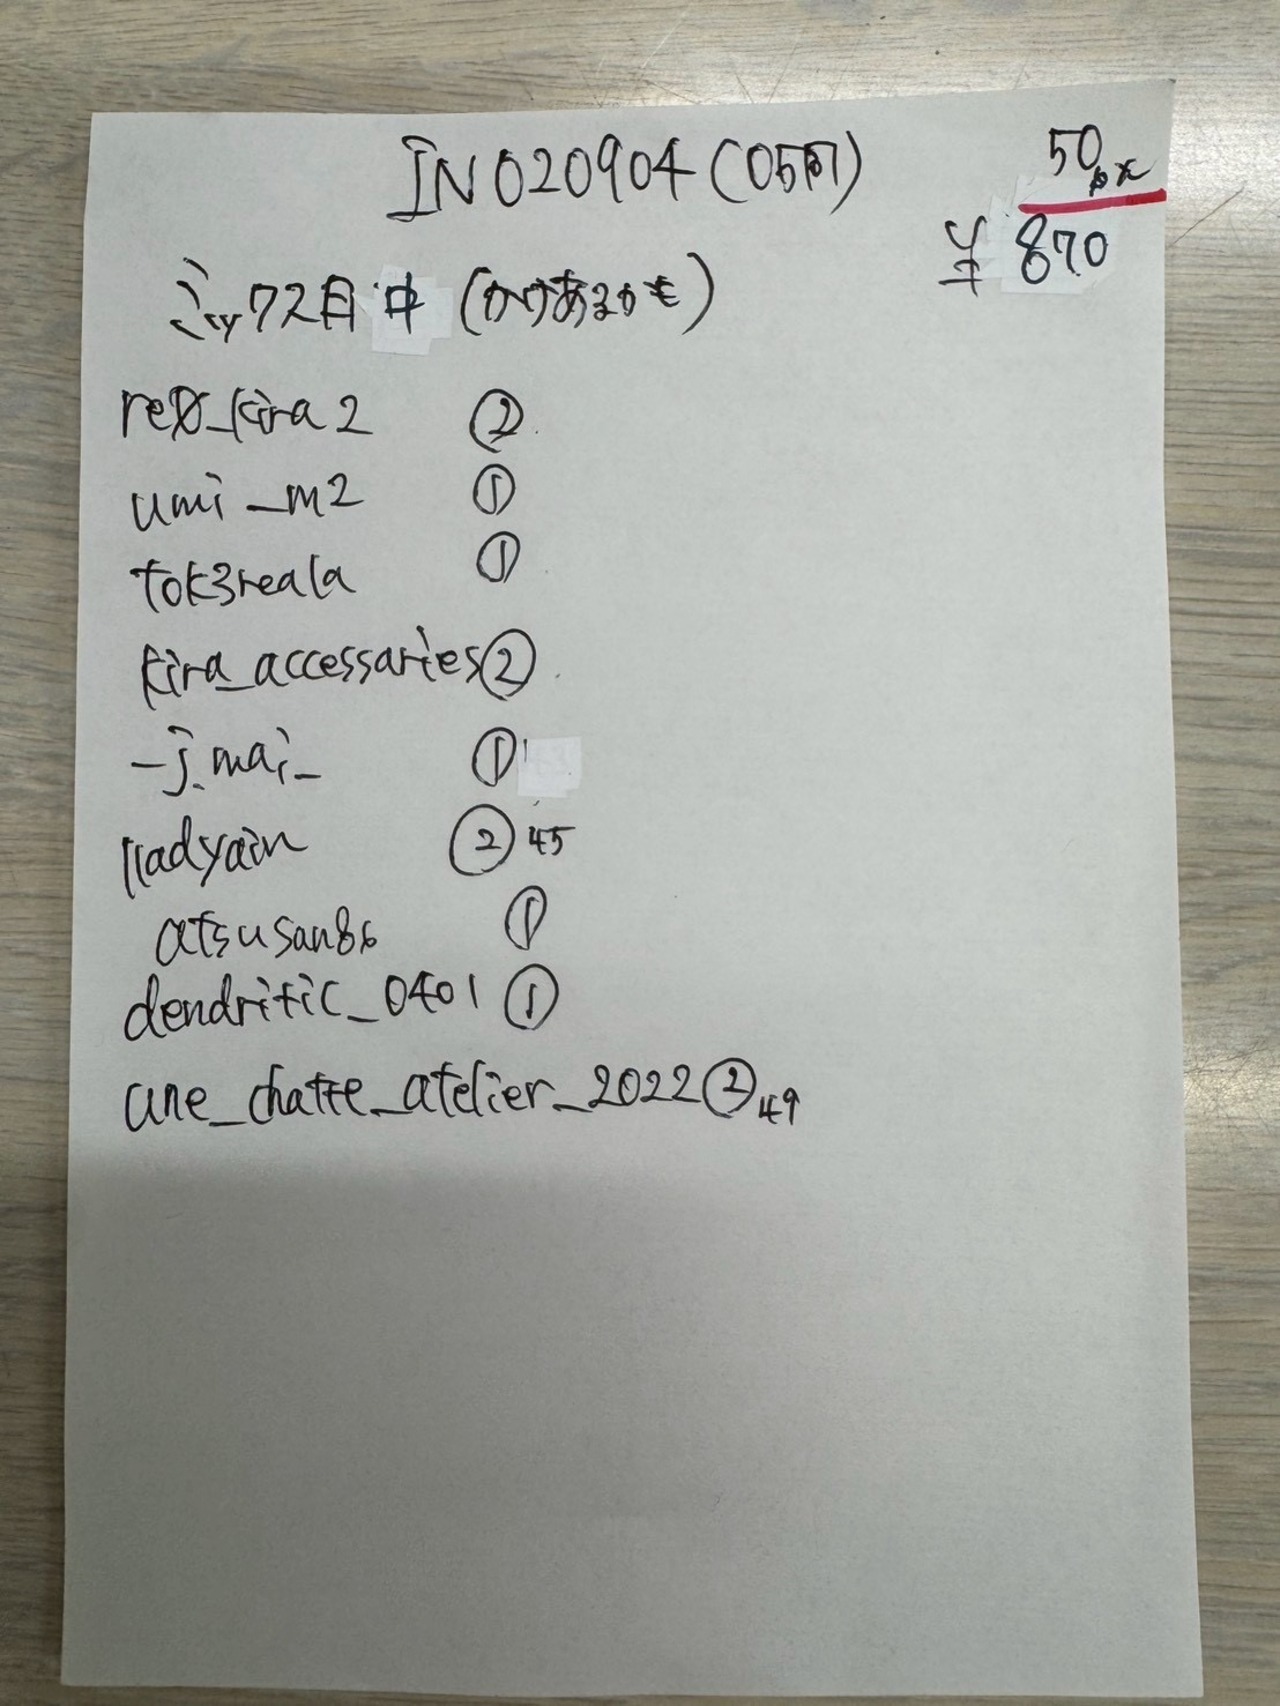 IN020904(05門)
50px
¥870
ミックス目中(かけあるかも)
re8_kira2 ②
umi_m2 ①
tok3reala ①
kira_accessaries②
_j.mai_ ①
lladyain ② 45
atsusan86 ①
dendritic_0401 ①
une_chatte_atelier_2022②49